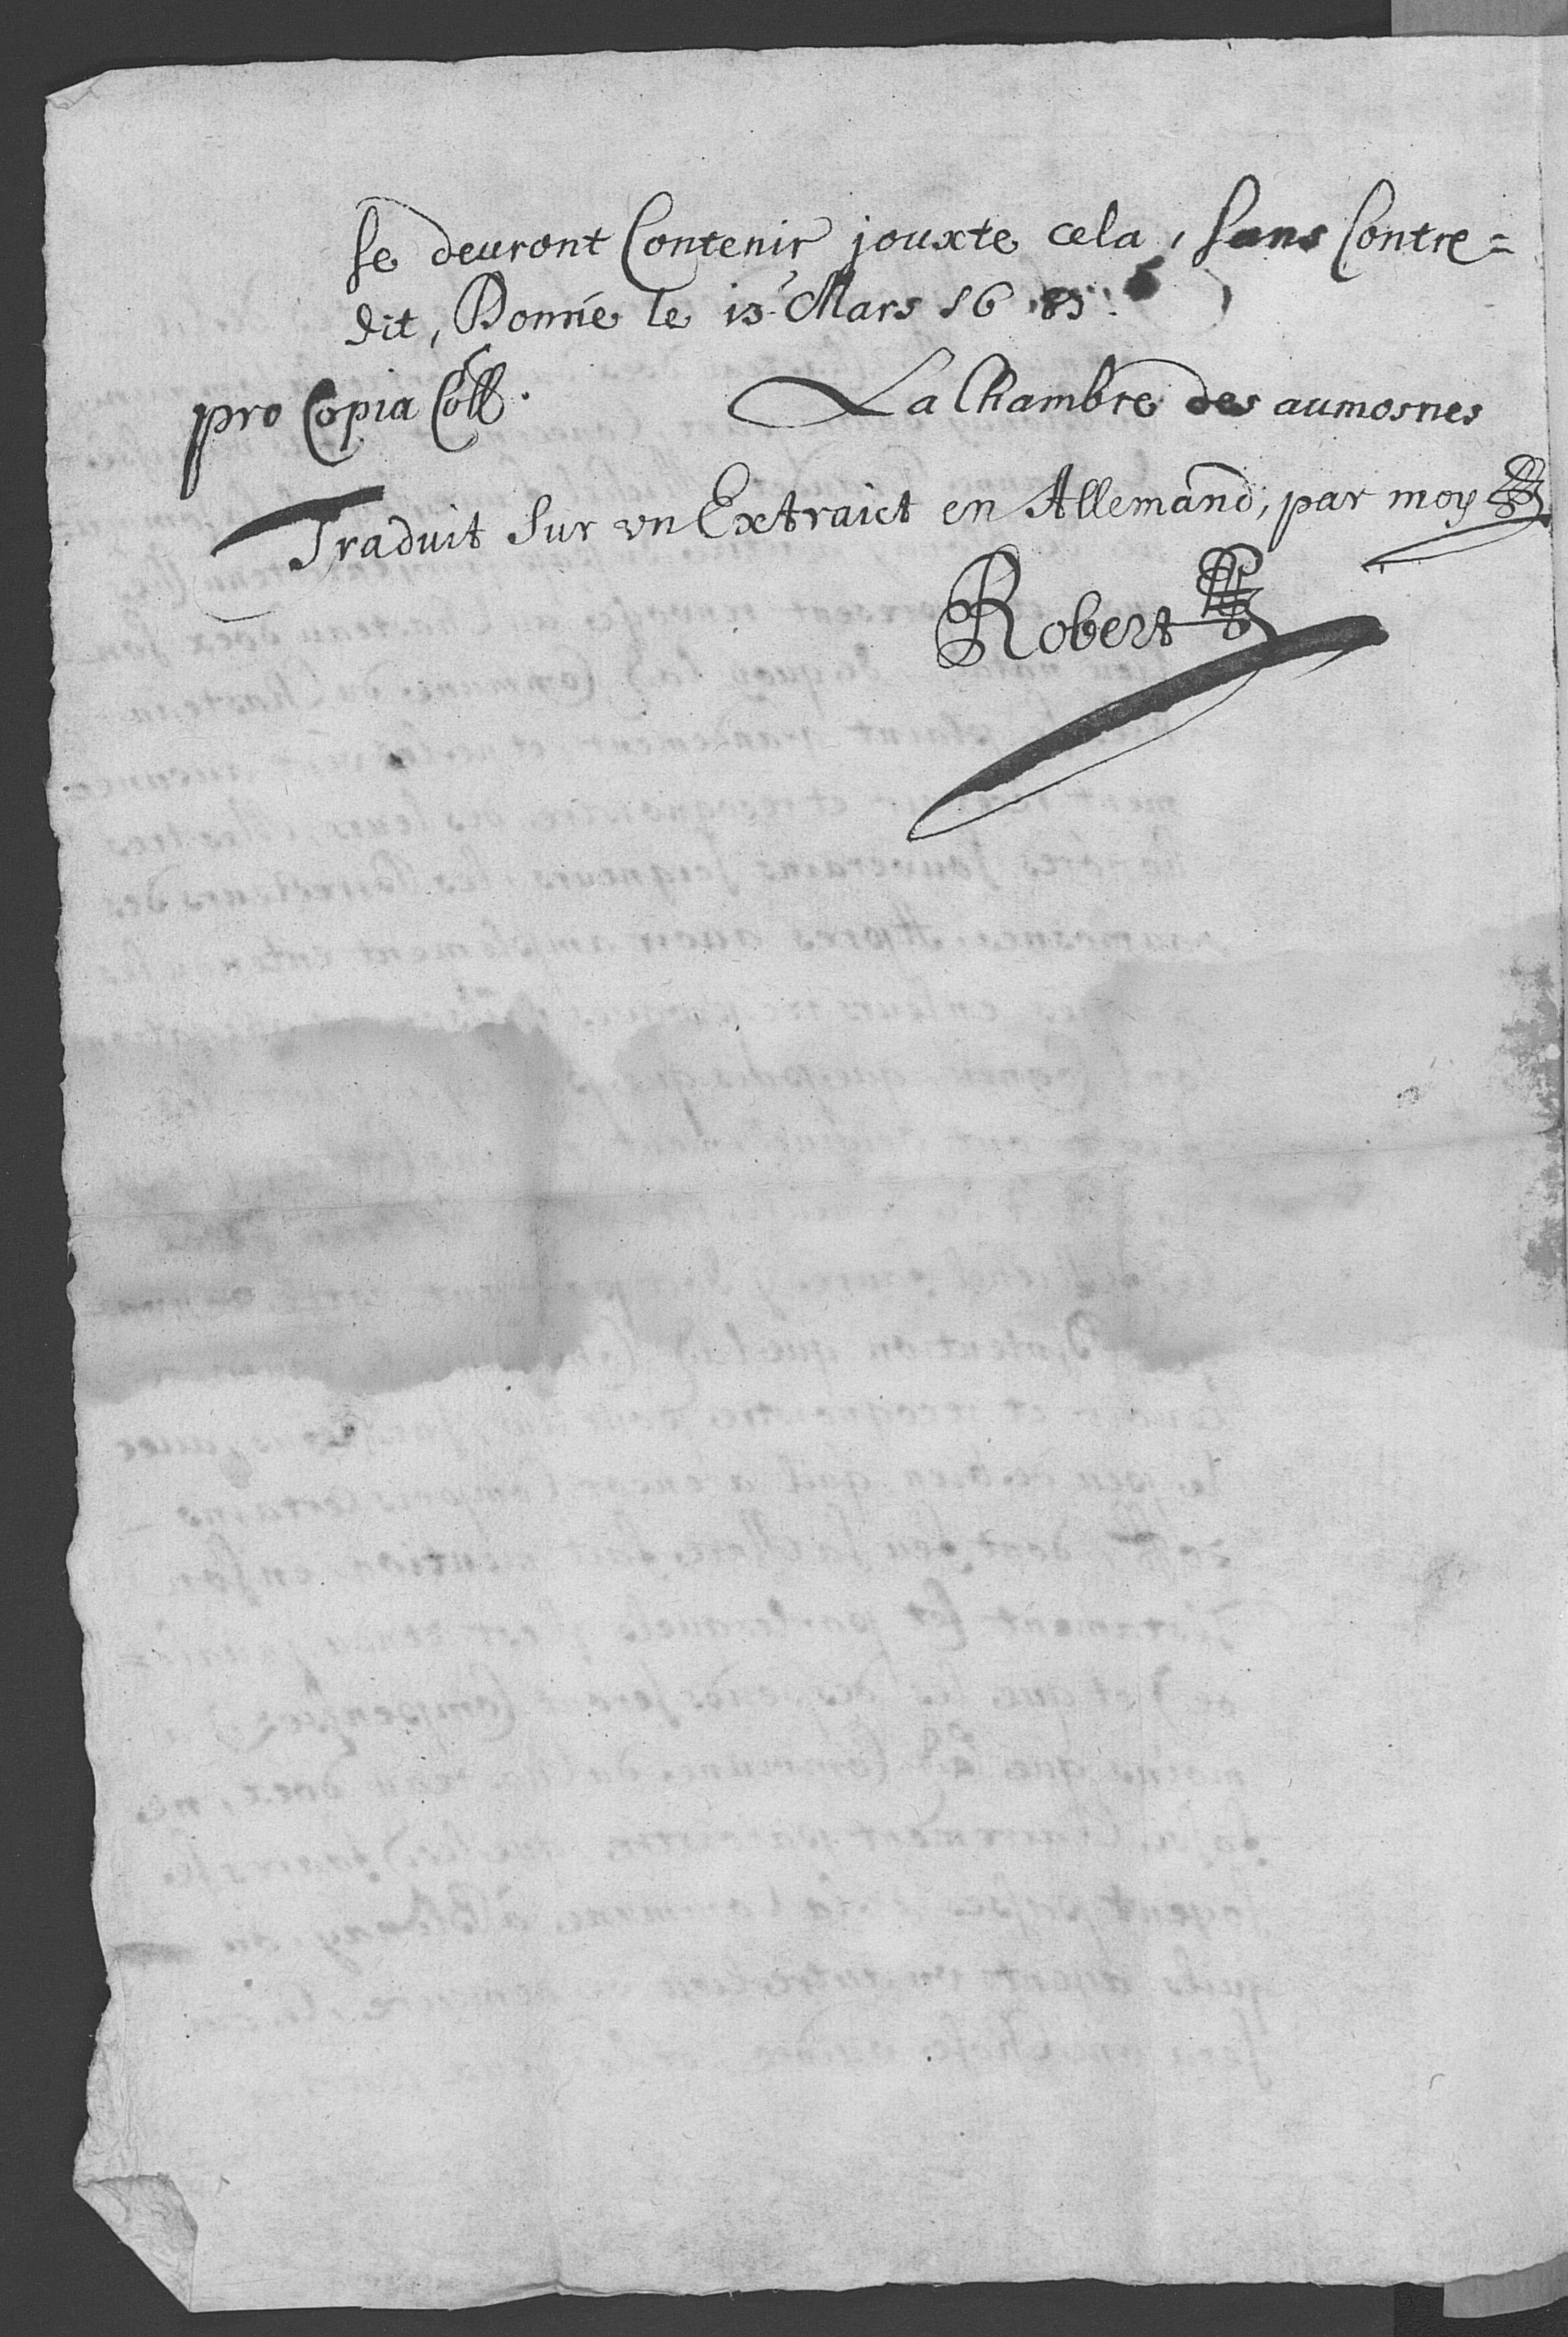 se devront Contenir jouxte cela, Sans Contre=
dit, Donné le 13e Mars 1685.
pro Copia Coll.
La Chambre des aumosnes
Traduit Sur vn Extraict en Allemand, par moy
Robert